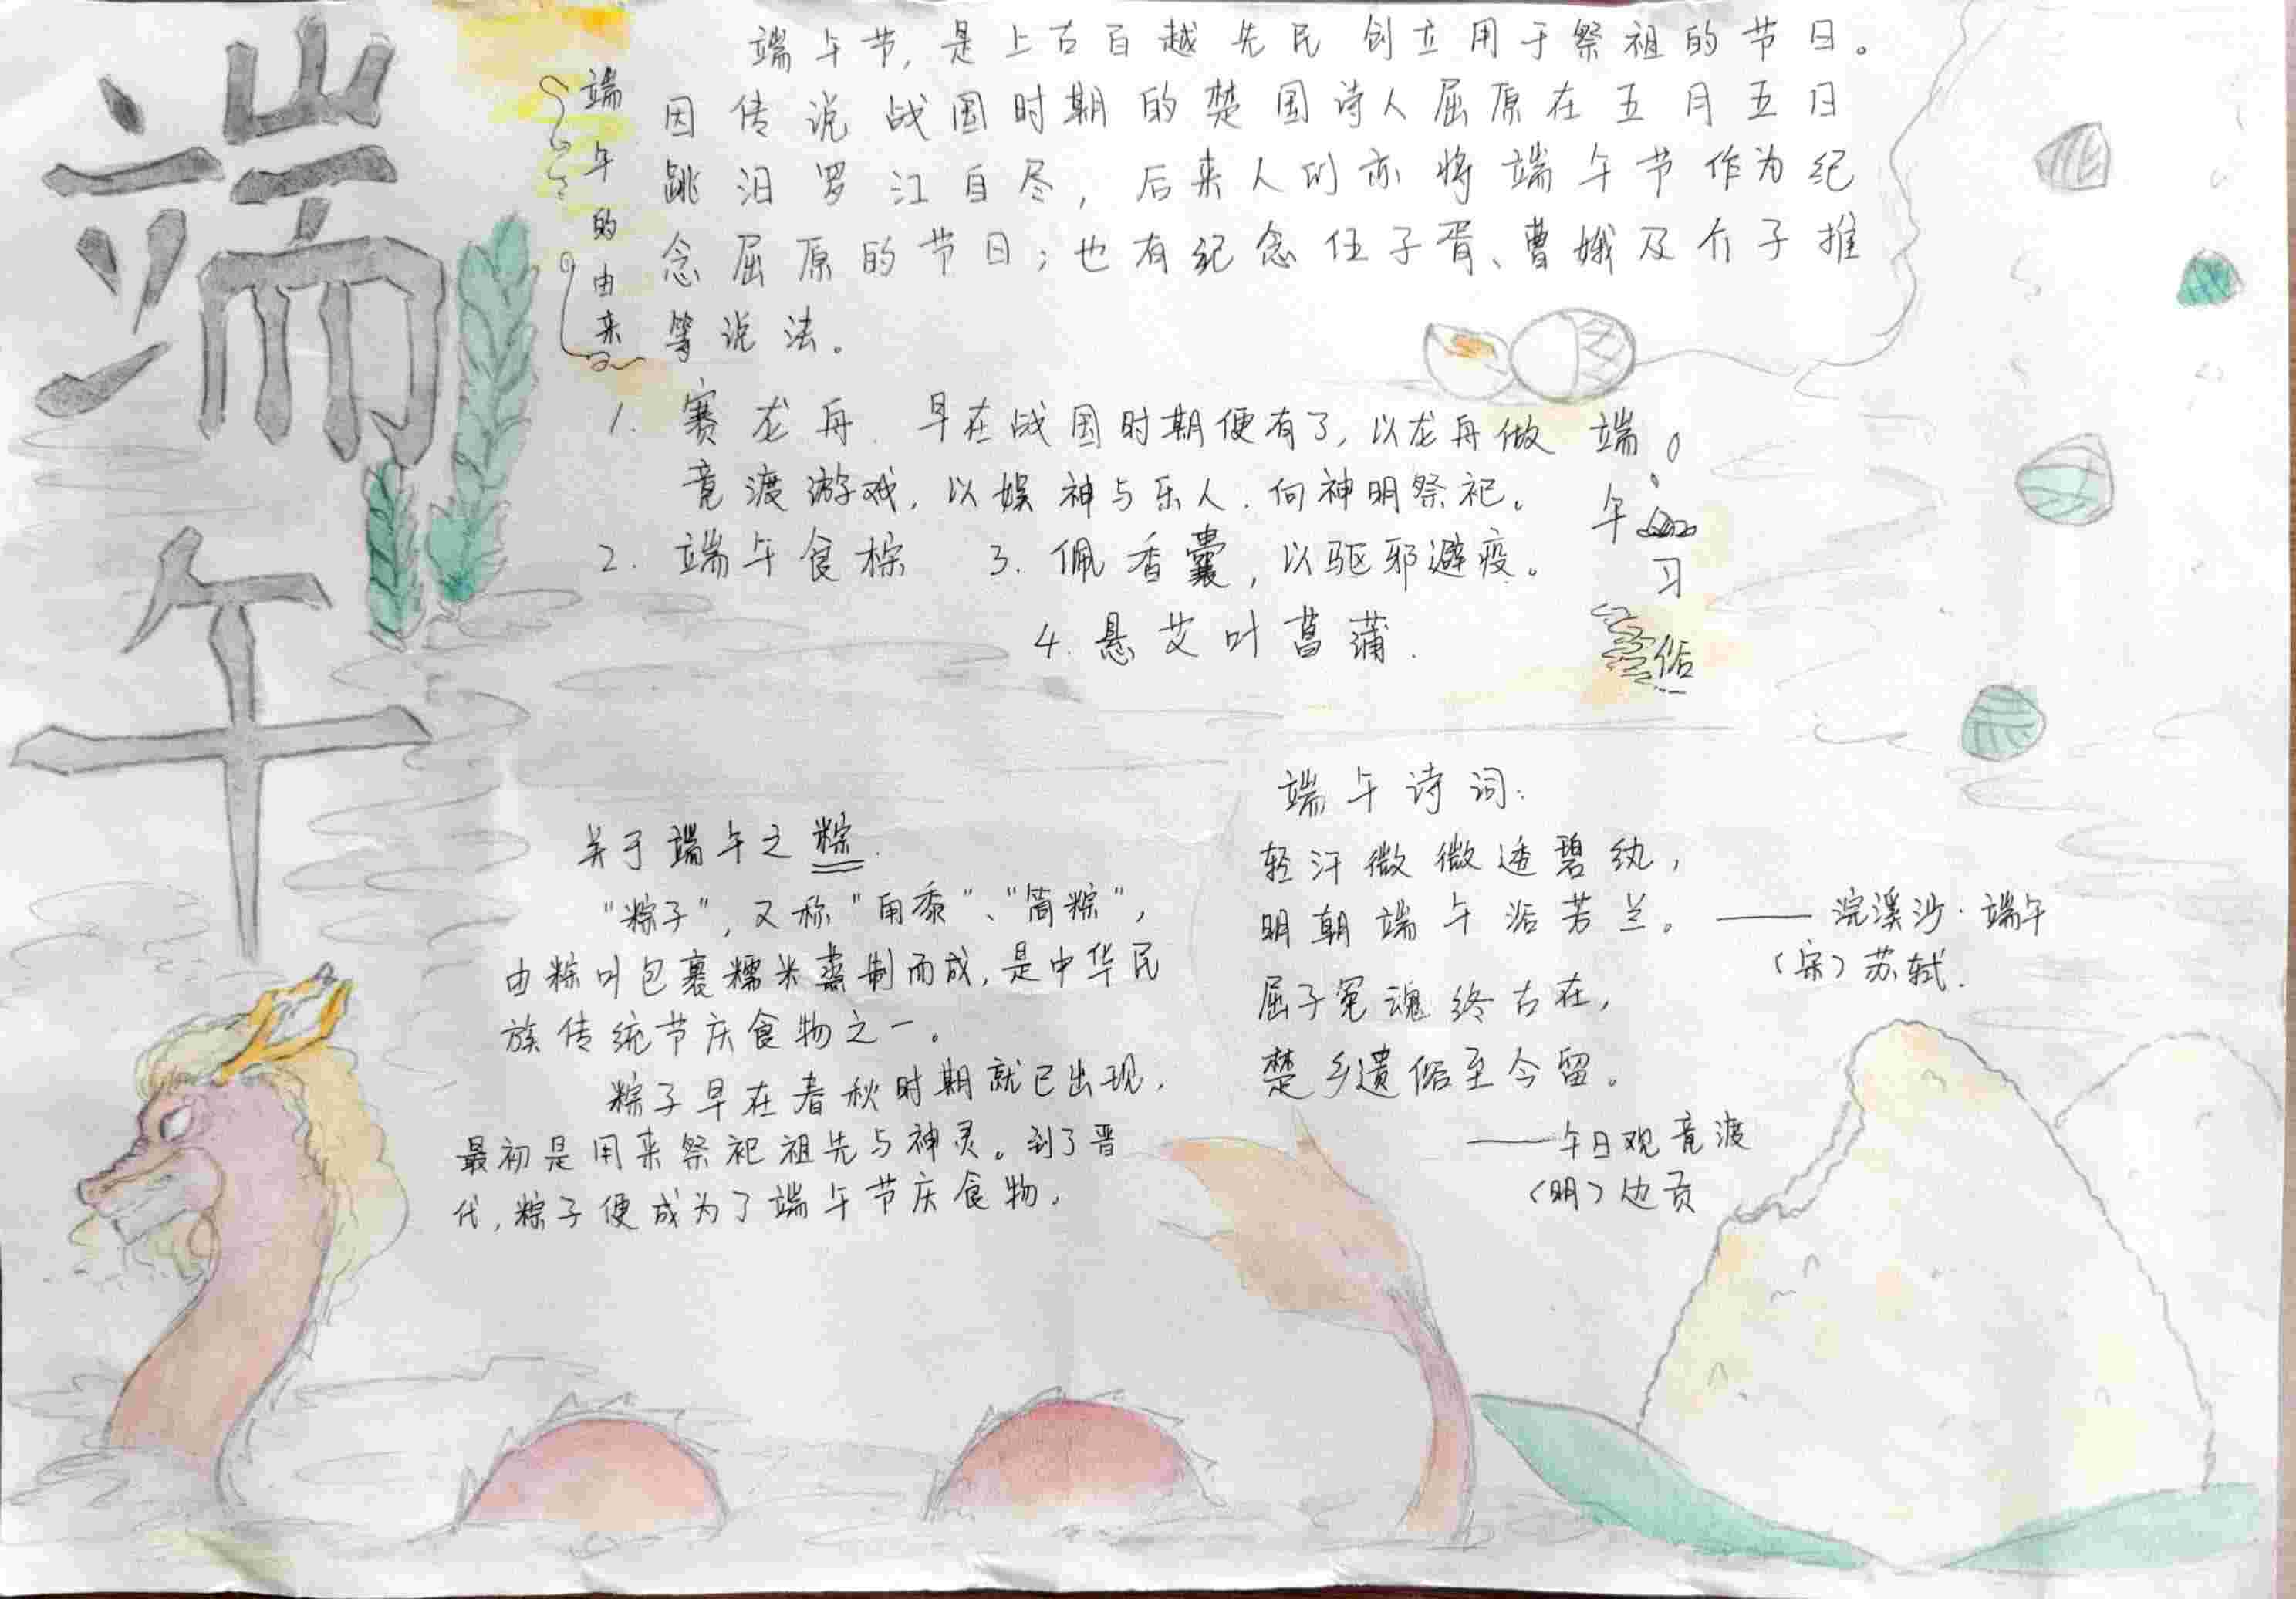 端午
端午的由来
端午节,是上古百越先民创立用于祭祖的节日。
因传说战国时期的楚国诗人屈原在五月五日
跳汨罗江自尽,后来人们亦将端午节作为纪
念屈原的节日;也有纪念伍子胥、曹娥及介子推
等说法。
端午习俗
1. 赛龙舟.早在战国时期便有了,以龙舟做
竟渡游戏,以娱神与乐人.向神明祭祀。
2. 端午食棕 3. 佩香囊,以驱邪避疫。
4.悬艾叶菖蒲.
关于端午之粽.
“粽子”,又称“角黍”、“筒粽”,
由粽叶包裹糯米蒸制而成,是中华民
族传统节庆食物之一。
粽子早在春秋时期就已出现,
最初是用来祭祀祖先与神灵。到了晋
代,粽子便成为了端午节庆食物.
端午诗词:
轻汗微微透碧纨,
明朝端午浴芳兰。——浣溪沙·端午
(宋)苏轼.
屈子冤魂终古在,
楚乡遗俗至今留。
——午日观竟渡
(明)边贡